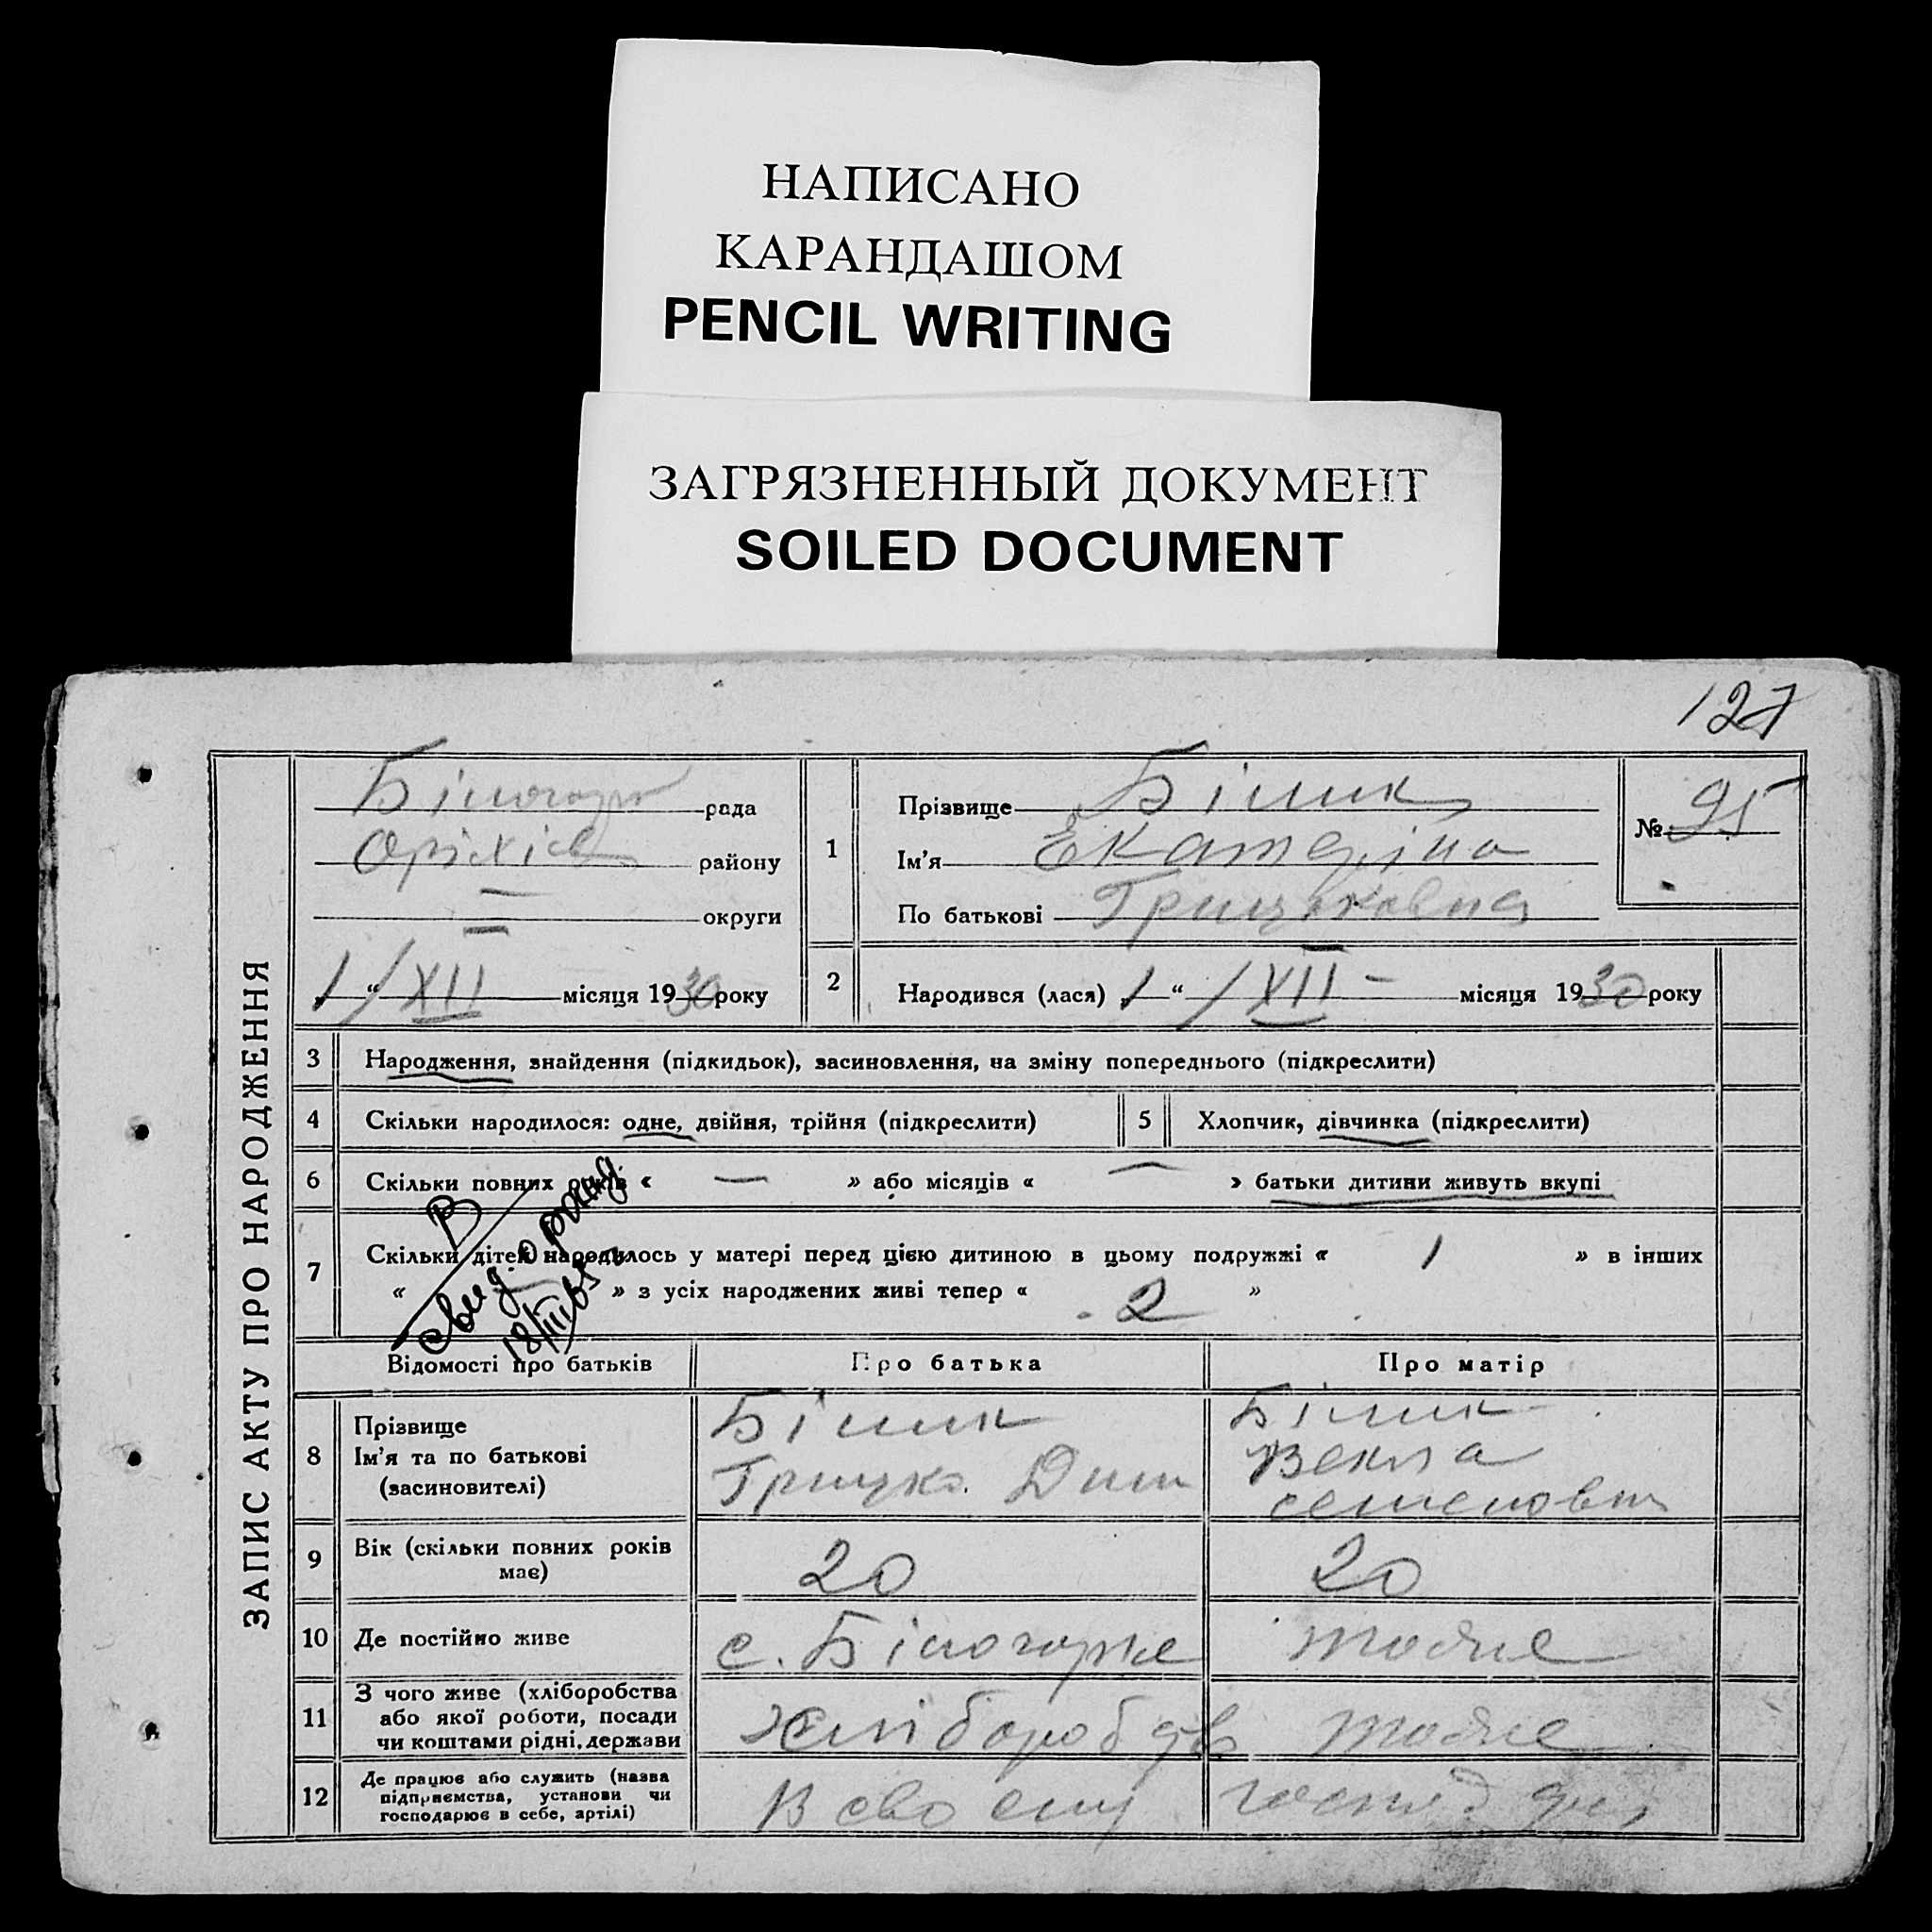 НАПИСАНО
КАРАНДАШОМ
PENCIL WRITING
ЗАГРЯЗНЕННЫЙ ДОКУМЕНТ
SOILED DOCUMENT
127
ЗАПИС АКТУ ПРО НАРОДЖЕННЯ
рада
Оріхів району
— округи
1 “ / XII місяця 1930 року
1
Прізвище Білик
Ім’я Екатеріна
По батькові Грицьковна
№ 95
2 Народився (лася) 1 “ / XII – місяця 1930 року
3 Народження, знайдення (підкидьок), засиновлення, на зміну попереднього (підкреслити)
4 Скільки народилося: одне, двійня, трійня (підкреслити)
5 Хлопчик, дівчинка (підкреслити)
6 Скільки повних років « — » або місяців « — » батьки дитини живуть вкупі
7 Скільки дітей народилось у матері перед цією дитиною в цьому подружжі « 1 » в інших
« » з усіх народжених живі тепер « 2 »
В
свид о рожд
18/III 65 г
Відомості про батьків Про батька Про матір
8 Прізвище
Ім’я та по батькові
(засиновителі)
Білик
Грицко Дит
Білик
Векла
Семеновн
9 Вік (скільки повних років
має)
20 20
10 Де постійно живе с. Білогорье тоже
11 З чого живе (хліборобства
або якої роботи, посади
чи коштами рідні, держави
хліборобув тоже
12 Де працює або служить (назва
підприємства, установи чи
господарює в себе, артілі)
В своєму